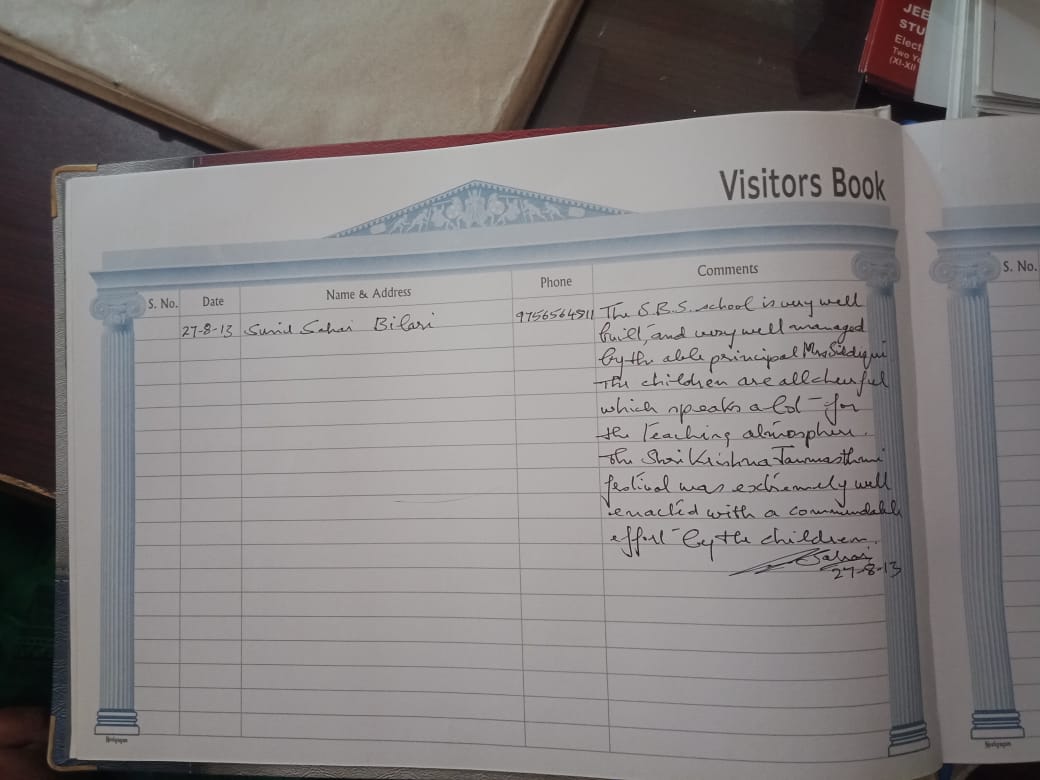 JEE
STU
Elect
Two Ye
(XI-XII
Visitors Book
S. No. Date Name & Address Phone Comments
S. No.
27-8-13 Sunil Sahai Bilari 9756564511 The S.B.S. school is very well
built, and very well managed
by the able principal Mrs Siddiqui
The children are all cheerful
which speaks a lot for
the teaching atmosphere.
The Shri Krishna Janmasthmi
festival was extremely well
enacted with a commendable
effort by the children.
Sahai
27-8-13
Neelgagan
Neelgagan